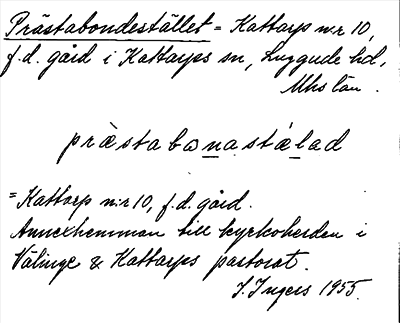 Prästabondestället = Kattarp n:r 10,
f.d. gård i Kattarps sn, Luggude hd,
Mhs län.
præstabωnastælad
= Kattarp n:r 10, f.d. gård.
Annexhemman till kyrkoherden i
Välinge & Kattarps pastorat.
I. Ingers 1955.